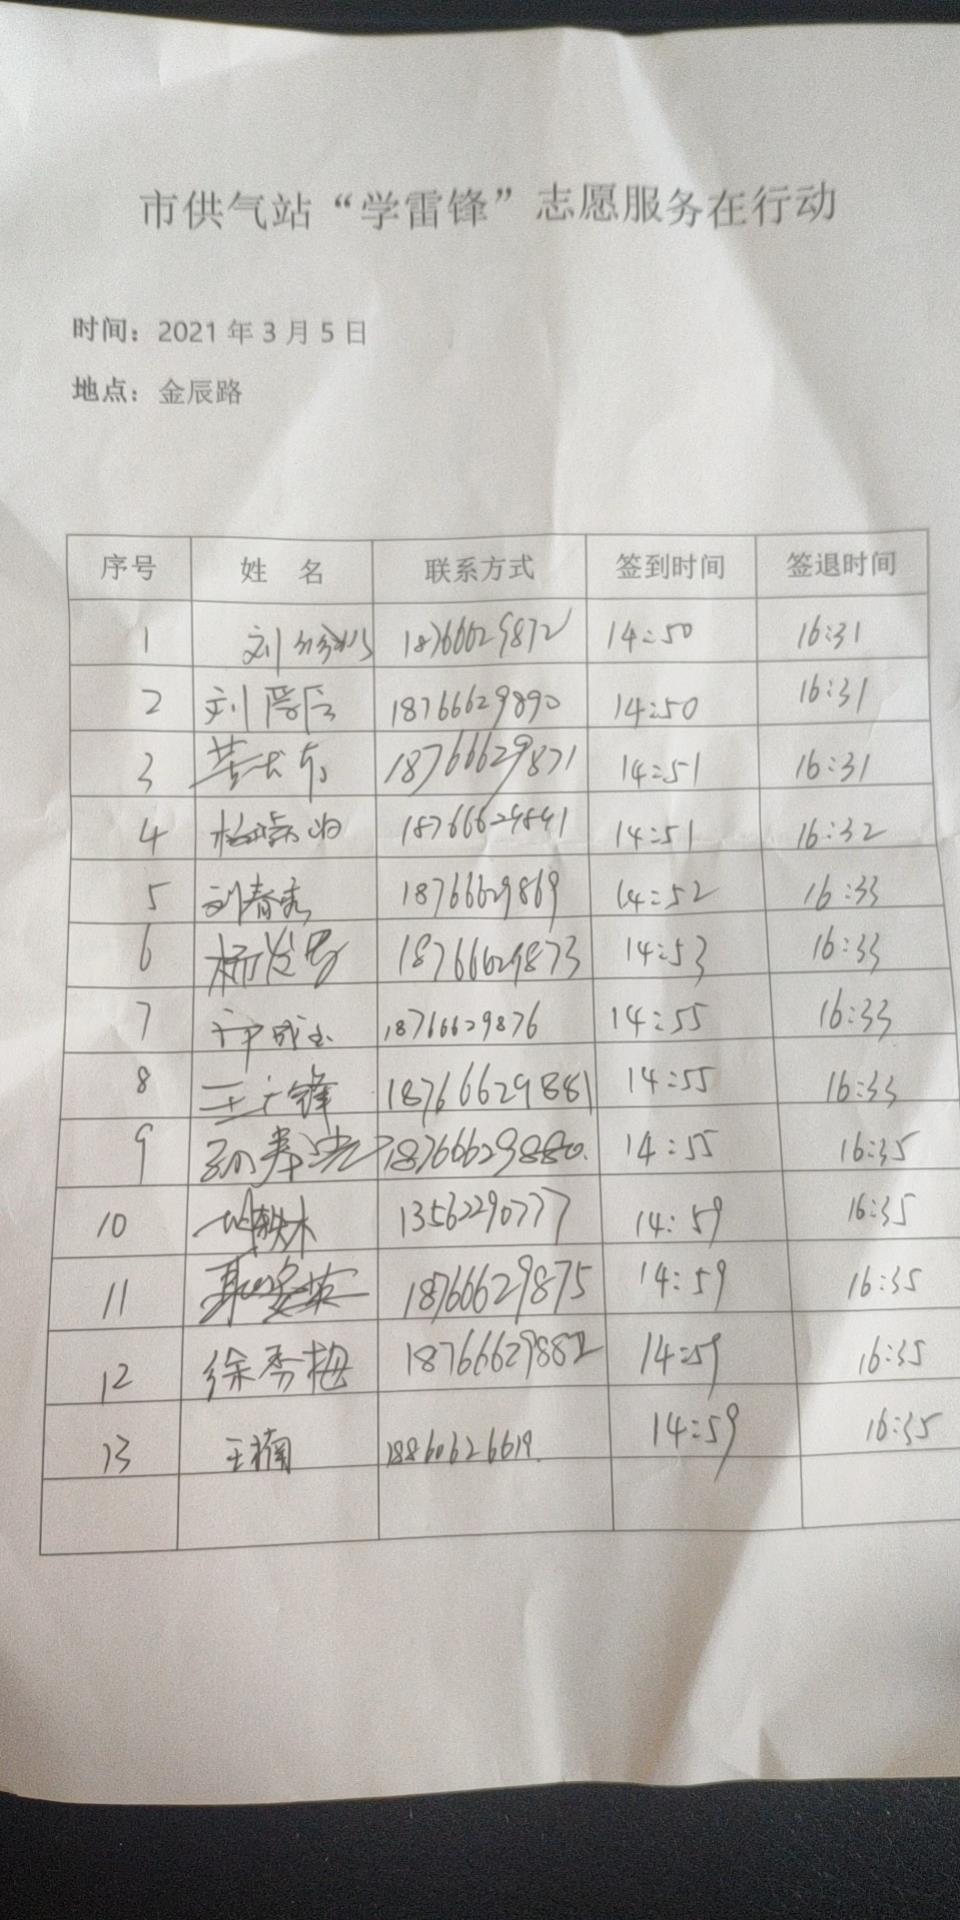 市供气站“学雷锋”志愿服务在行动
时间：2021年3月5日
地点：金辰路
序号 姓 名 联系方式 签到时间 签退时间
1 刘 18766629872 14:50 16:31
2 刘 18766629890 14:50 16:31
3 18766629871 14:51 16:31
4 14:51 16:32
5 刘春秀 18766629869 14:52 16:33
6 杨 18766629873 14:53 16:33
7 18766629876 14:55 16:33
8 王 锋 18766629881 14:55 16:33
9 孙寿 18766629880. 14:55 16:35
10 13562290777 14:59 16:35
11 18766629875 14:59 16:35
12 徐秀梅 18766629882 14:59 16:35
13 王楠 18860626619. 14:59 16:35